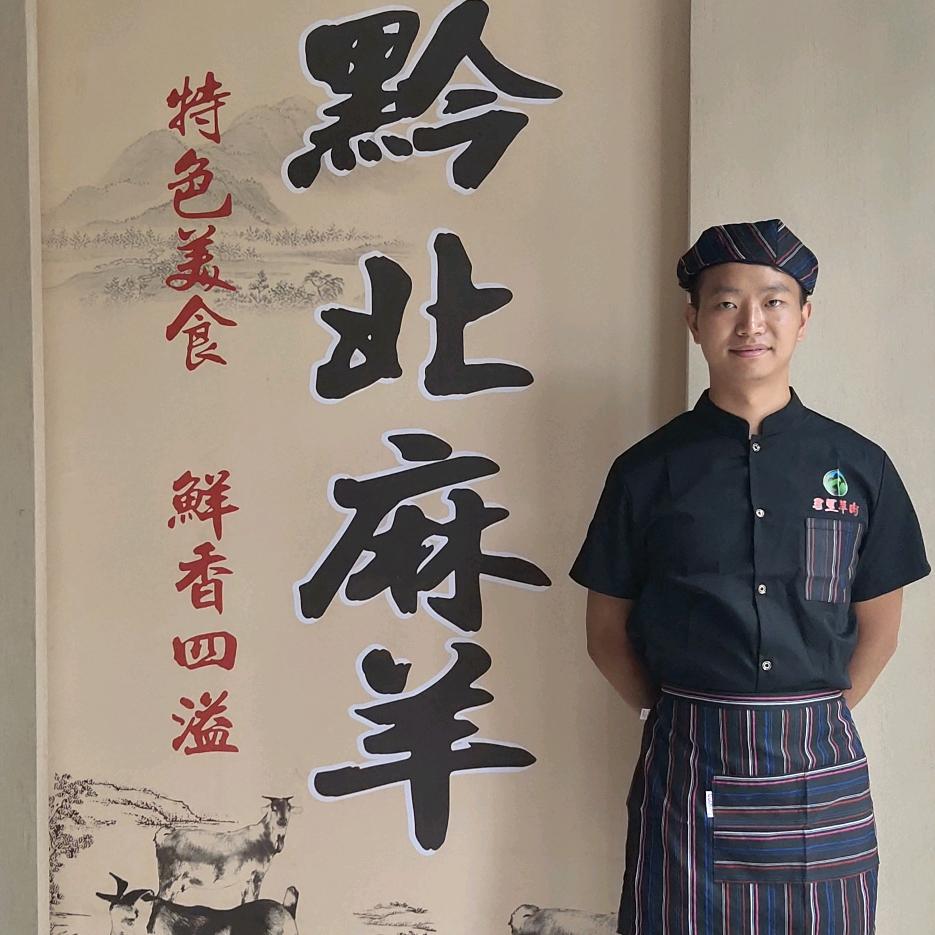 黔北麻羊
特色美食
鮮香四溢